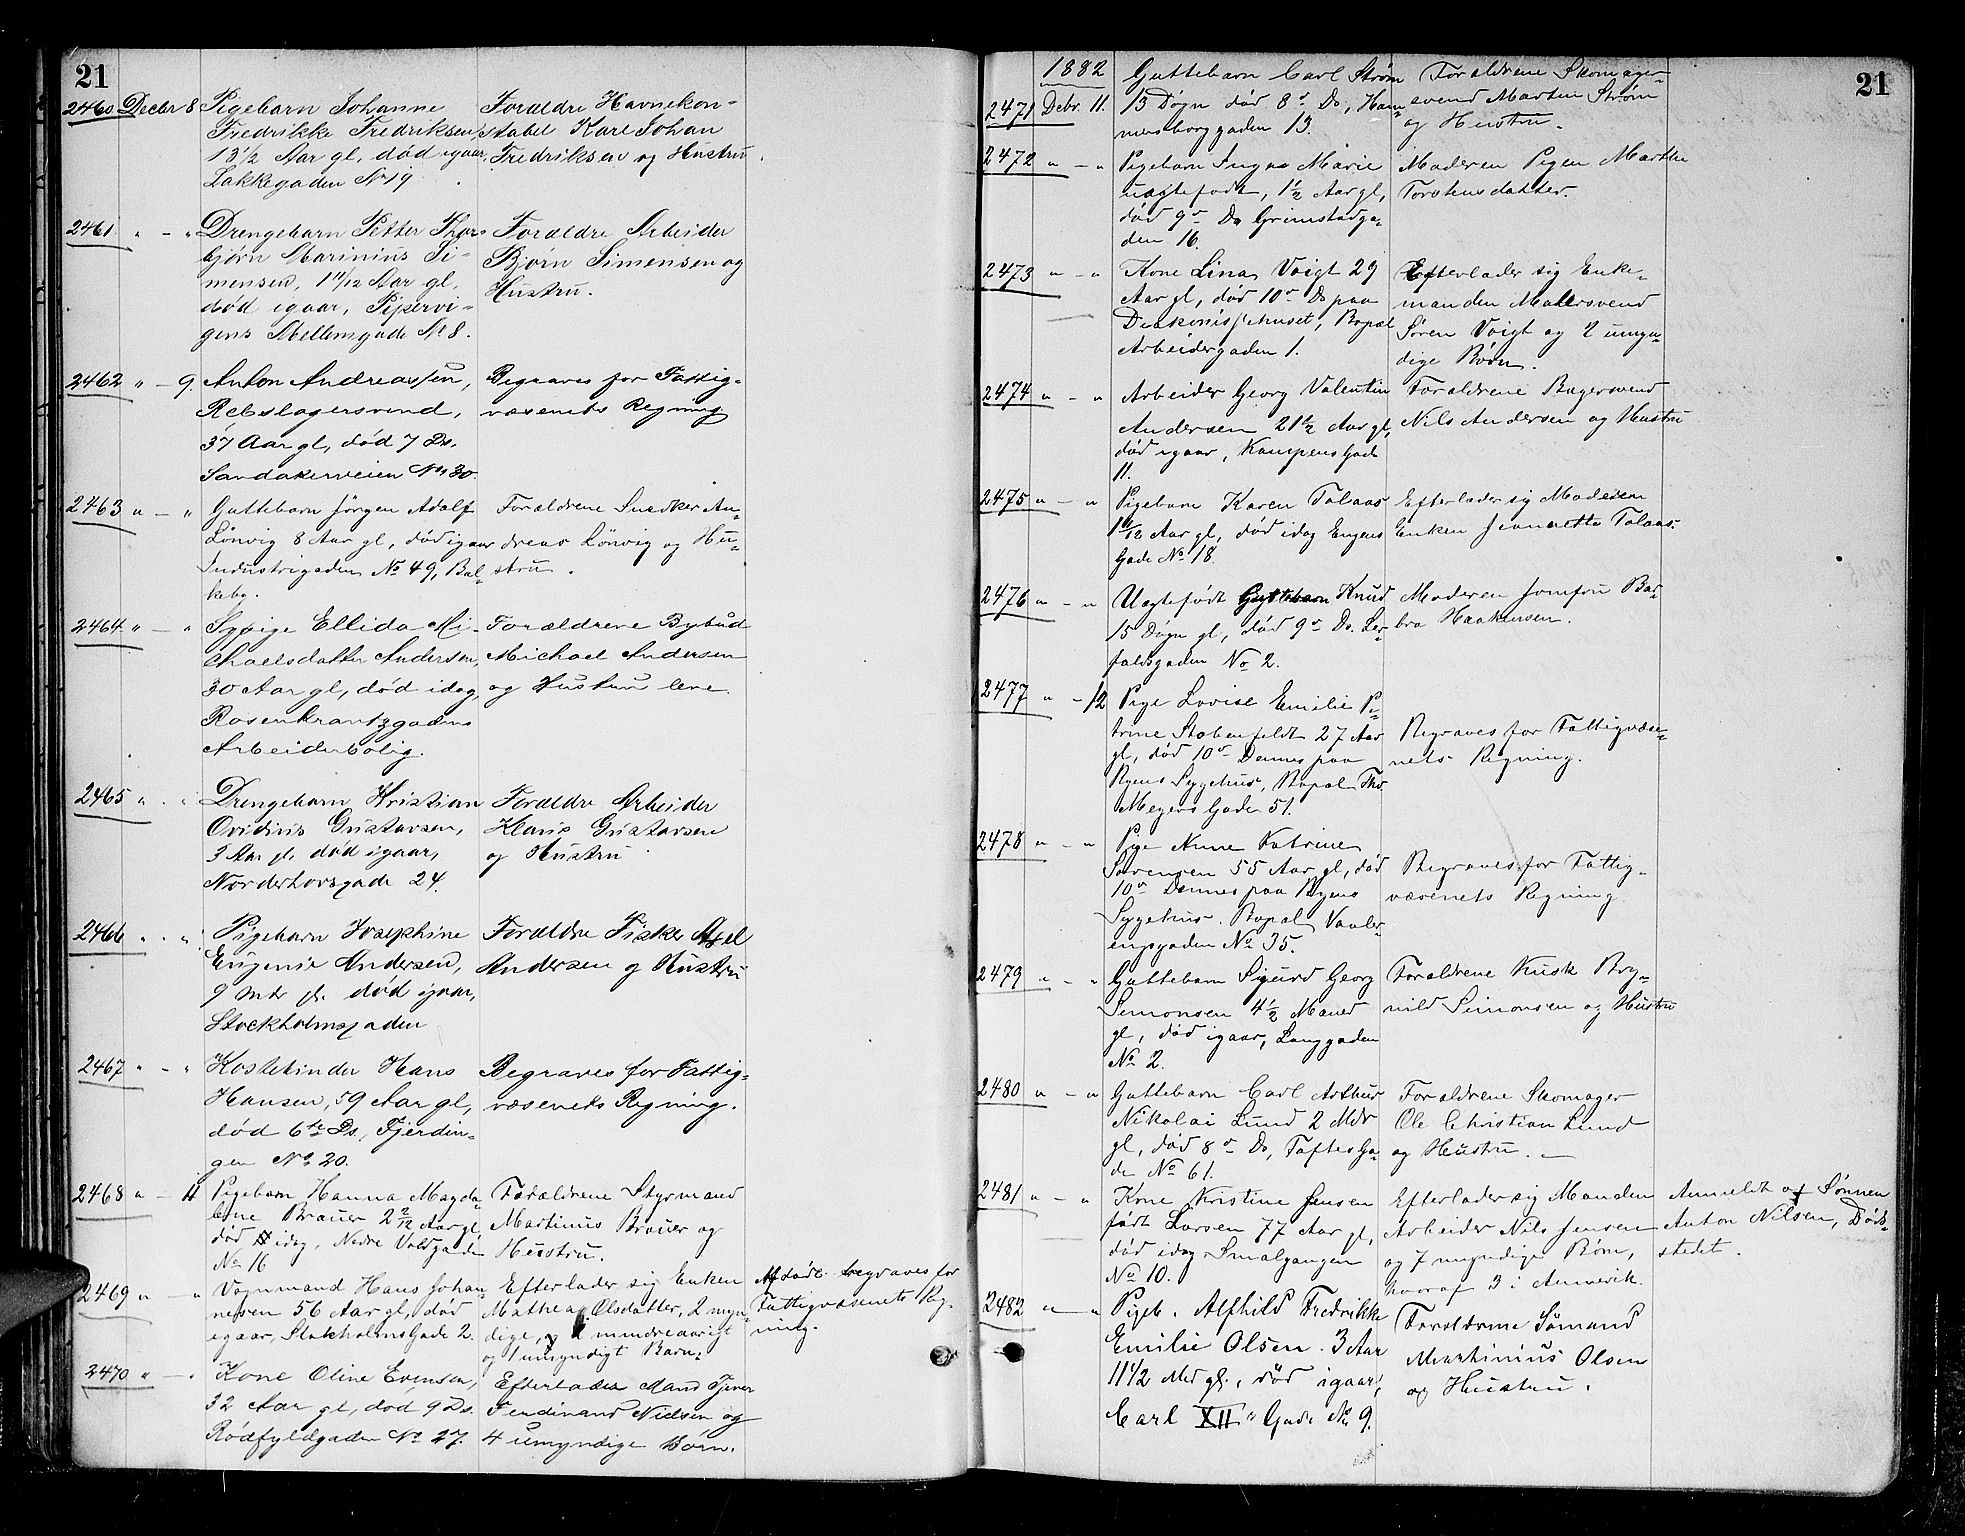 21
2460 Decbr 8 Pigebarn Johanne
Fredrikke Fredriksen,
13 1/2 Aar gl, død igaar,
Lakkegaden No 19
Forældre Havnekon-
stabel Karl Johan
Fredriksen og Hustru.
2461 " - " Drengebarn Petter Thor-
bjørn Marinius Si-
mensen, 1 11/12 Aar gl,
død igaar, Pipervi-
gens Mellemgade No 8.
Forældre Arbeider
Bjørn Simensen og
Hustru.
2462 " - 9. Anton Andreassen,
Rebslagersvend,
37 Aar gl, død 7 Ds.
Sandakerveien No 30
Begraves for Fattig-
væsenets Regning
2463 " - " Guttebarn Jörgen Adolf
Lönvig 8 Aar gl, död igaar
Industrigaden No 49, Bal-
keby.
Forældrene Snedker An-
dreas Lönvig og Hu-
stru.
2464 " - " Sypige Ellida Mi-
chaelsdatter Andersen,
30 Aar gl, död idag,
Rosenkrantzgadens
Arbeiderbolig.
Forældrene Bybud
Michael Andersen
og Hustru leve.
2465 " . " Drengebarn Kristian
Ovidius Gustavsen,
3 Aar gl. død igaar,
Norderhovsgade 24.
Forældre Arbeider
Hans Gustavsen
og Hustru
2466 " . " Pigebarn Josephine
Eugenie Andersen,
9 Mdr gl. død igaar,
Stockholmsgaden
Forældre Fisker Axel
Andersen og Hustru
2467 " - " Kostebinder Hans
Hansen, 59 Aar gl,
død 6te Ds, Fjerdin-
gen No 20.
Begraves for Fattig-
væsenets Regning.
2468 " - 11 Pigebarn Hanna Magda-
lene Brauer 2 2/12 Aar gl,
död idag, Nedre Voldgade
No 16
Forældrene Styrmand
Martinus Brauer og
Hustru.
2469 " - " Vognmand Hans Johan-
nesen 56 Aar gl, död
igaar, Stokholms Gade 2.
Efterlader sig Enken
Mathea Olsdatter, 2 myn-
dige, og mindreaarigt
og 1 umyndigt Barn.
Afdöde begraves for
Fattigvæsenets Reg-
ning.
2470 " - " Kone Oline Evensen,
32 Aar gl, död 9 Ds.
Rödfyldgaden No 27.
Efterlader Mand Tjener
Ferdinand Nielsen og
4 umyndige Börn.
21
1882
2471 Debr. 11. Guttebarn Carl Ström
13 Dögn död 8de Ds, Ham-
mersborggaden 13.
Forældrene Skomager-
svend Martin Ström
og Hustru.
2472 " - " Pigebarn Inga Marie
uægtefödt, 1 1/2 Aar gl,
död 9de Ds Grimstadga-
den 16.
Moderen Pigen Marthe
Torstensdatter.
2473 " - " Kone Lina Voigt 29
Aar gl, död 10de Ds paa
Diakonissehuset, Bopæl
Arbeidergaden 1.
Efterlader sig Enke-
manden Malersvend
Sören Voigt og 2 umyn-
dige Börn.
2474 " - " Arbeider Georg Valentin
Andersen 21 1/2 Aar gl,
död igaar, Kampens Gade
11.
Forældrene Bagersvend
Nils Andersen og Hustru
2475 " - " Pigebarn Karen Talaas
1 4/12 Aar gl, död idag Engens
Gade No 18.
Efterlader sig Moderen
Enken Jeannette Talaas.
2476 " - " Uægtefödt Guttebarn Knud
15 Dögn gl, död 9de Ds. Ler-
faldsgaden No 2.
Moderen Jomfru Bar-
bra Haakensen.
2477 " - 12 Pige Lovise Emilie Pe-
trine Stabenfeldt 27 Aar
gl, död 10de Dennes paa
Ryens Sygehus, Bopæl Ths
Meyers Gade 51.
Begraves for Fattigvæse-
nets Regning.
2478 " - " Pige Anne Katrine
Sörensen 55 Aar gl, död
10de Dennes paa Ryens
Sygehus. Bopæl Vauler-
engsgaden No 35.
Begraves for Fattig-
væsenets Regning.
2479 " - " Guttebarn Sigurd Georg
Simonsen 4 1/2 Maaned
gl, död igaar, Langgaden
No 2.
Forældrene Kusk Bry-
nild Simonsen og Hustru
2480 " - " Guttebarn Carl Arthur
Nikolai Lund 2 Mdr
gl, död 8de Ds, Toftes Ga-
de No 61.
Forældrene Skomager
Ole Christian Lund
og Hustru.
2481 " - " Kone Kristine Jensen
födt Larsen 77 Aar gl,
död idag Smalgangen
No 10.
Efterlader sig Manden
Arbeider Nils Jensen
og 7 myndige Börn,
hvoraf 3 i Amerik.
Anmeldt af Sönnen
Anton Nilsen, Döds-
stedet.
2482 " - " Pigeb. Alfhild Fredrikke
Emilie Olsen. 3 Aar
11 1/2 Md gl., død igaar,
Carl XII" Gade No 9.
Forældrene Sömand
Martinius Olsen
og Hustru.